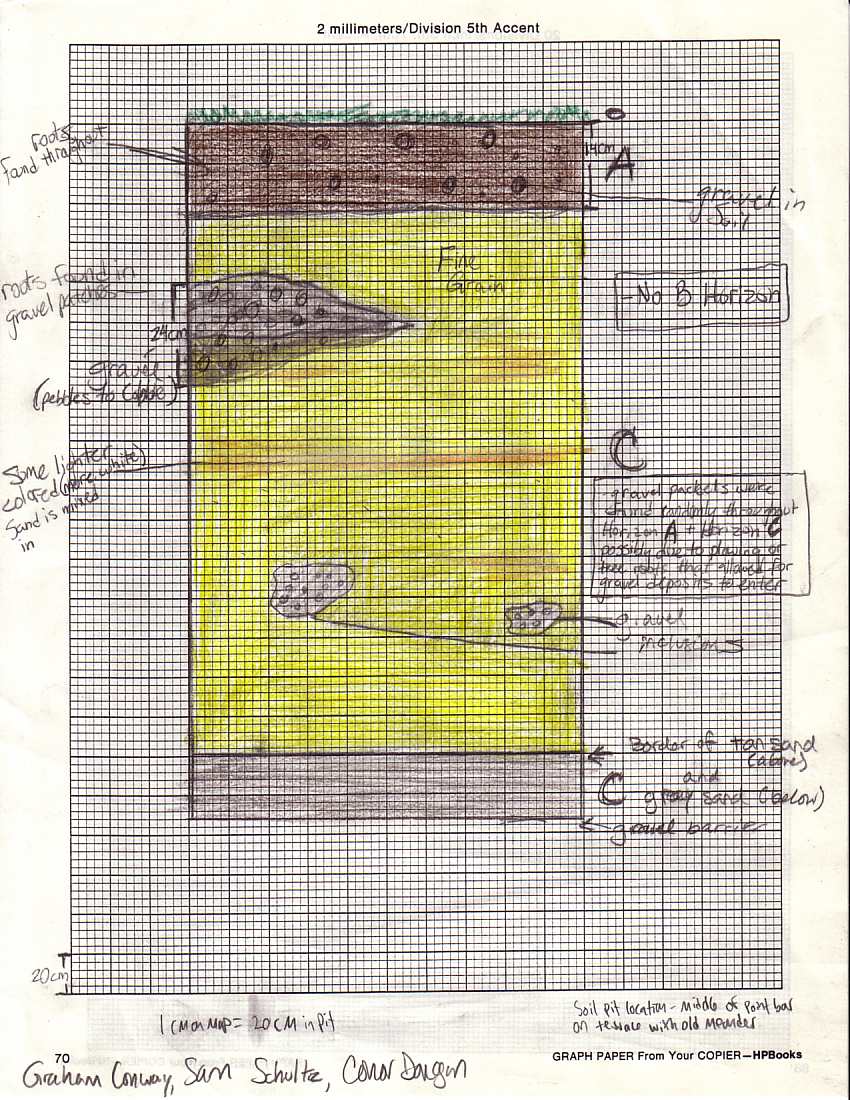 2 millimeters/Division 5th Accent
O
roots
found throughout
14cm
A
gravel in
Soil
Fine
Grain
roots found in
gravel patches
- No B Horizon
24cm
gravel
(pebbles to cobble)
C
Some lighter
colored (more white)
Sand is mixed
in
-gravel packets were
found randomly throughout
Horizon A + Horizon C
possibly due to plowing or
tree roots that allowed for
gravel deposits to enter
gravel
inclusions
Border of tan sand
(above)
and
C gray sand (below)
gravel barrier
20cm
1 cm on map = 20 cm in pit
Soil pit location - middle of point bar
on terrace with old meander
70
GRAPH PAPER From Your COPIER—HPBooks
Graham Conway, Sam Schultz, Conor